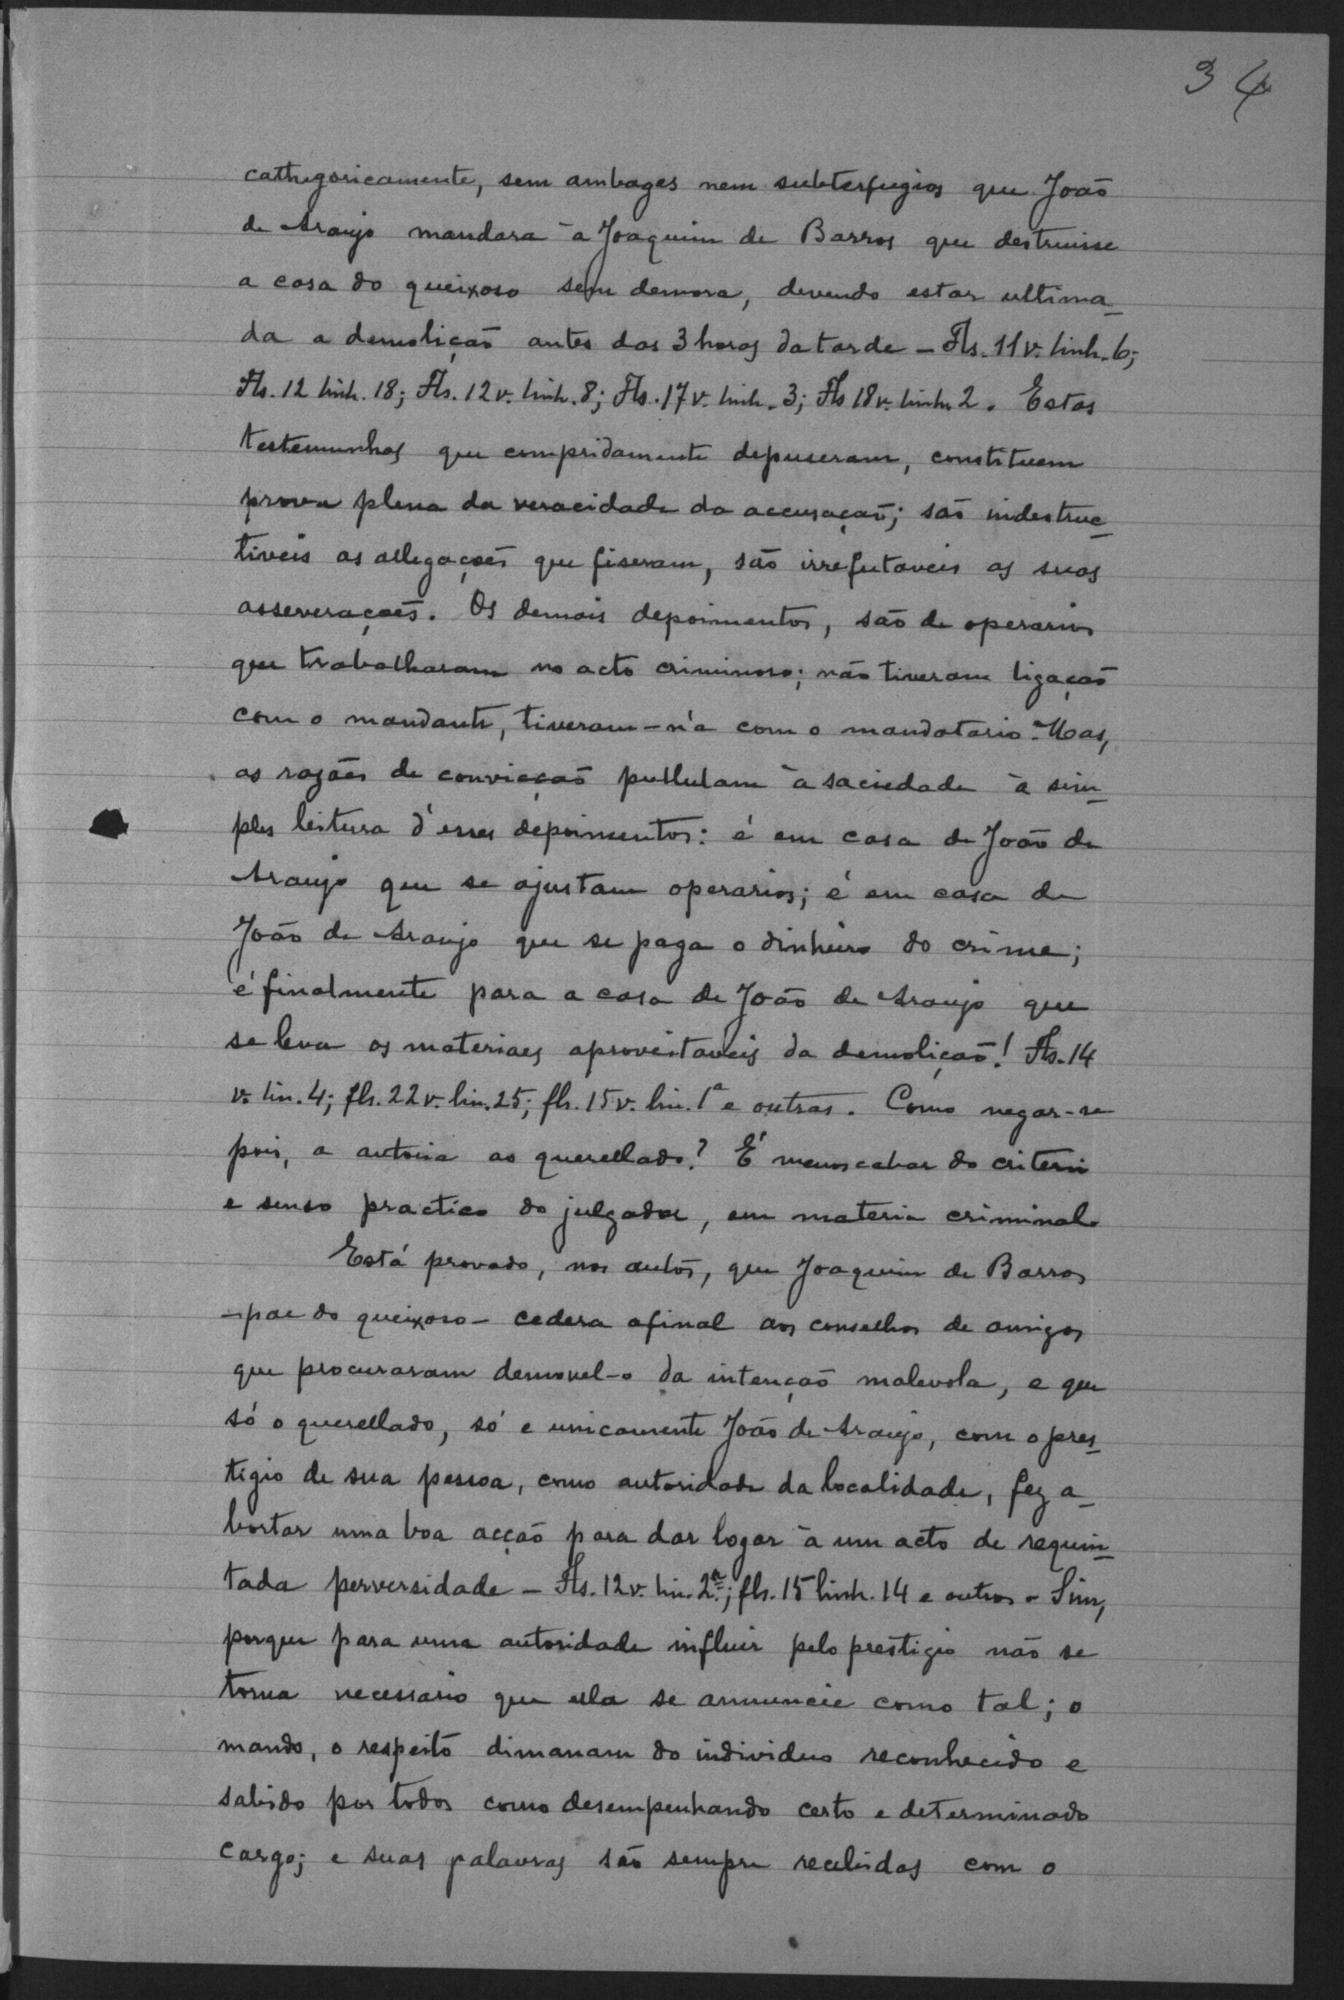 34
cathegoricamente, sem ambages nem subterfugios que João
de Araujo mandara à Joaquim de Barros que destruisse
a casa do queixoso sem demora, devendo estar ultima_
da a demolição antes das 3 horas da tarde - Fls. 11 v. linh. 6;
Fls. 12 linh. 18; Fls. 12 v. linh. 8; Fls. 17 v. linh. 3; Fls 18 v. linh. 2. Estas
testemunhas que compridamente depuseram, constituem
prova plena da veracidade da accusação; são indestruc_
tiveis as allegações que fiseram, são irrefutaveis as suas
asseverações. Os demais depoimentos, são de operarios
que trabalharam no acto criminoso; não tiveram ligação
com o mandante, tiveram-n'a com o mandatario. Mas,
as razões de convicção pullulam à saciedade à sim_
ples leitura d'esses depoimentos: é em casa de João de
Araujo que se ajustam operarios; é em casa de
João de Araujo que se paga o dinheiro do crime;
é finalmente para a casa de João de Araujo que
se leva os materiaes aproveitaveis da demolição! Fls. 14
v. lin. 4; fls. 22 v. lin. 25; fls. 15 v. lin. 1ª e outras. Como negar-se
pois, a autoria ao querellado? É menoscabar do criterio
e senso practico do julgador, em materia criminal.
Está provado, nos autos, que Joaquim de Barros
-pae do queixoso- cedera afinal aos conselhos de amigos
que procuraram demovel-o da intenção malevola, e que
só o querellado, só e unicamente João de Araujo, com o pres_
tigio de sua pessoa, como autoridade da localidade, fez a_
bortar uma boa acção para dar logar à um acto de requin_
tada perversidade - Fls. 12 v. lin. 2ª; fls. 15 linh. 14 e outros - Sim,
porque para uma autoridade influir pelo prestigio não se
torna necessario que ella se annuncie como tal; o
mando, o respeito dimanam do individuo reconhecido e
sabido por todos como desempenhando certo e determinado
cargo; e suas palavras são sempre recebidas com o